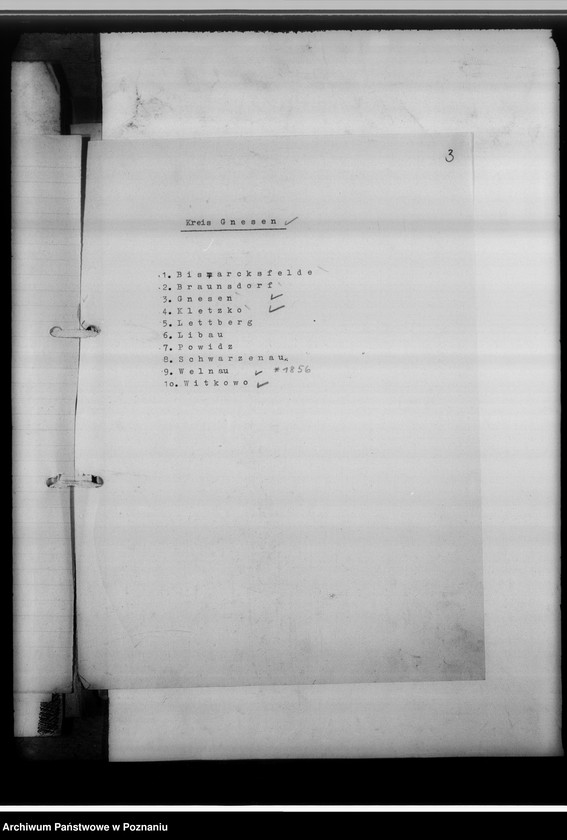 3
Kreis Gnesen ✓
1. Bismarcksfelde
2. Braunsdorf
3. Gnesen ✓
4. Kletzko ✓
5. Lettberg
6. Libau
7. Powidz
8. Schwarzenau
9. Welnau ✓ *1856
10. Witkowo ✓
Archiwum Państwowe w Poznaniu